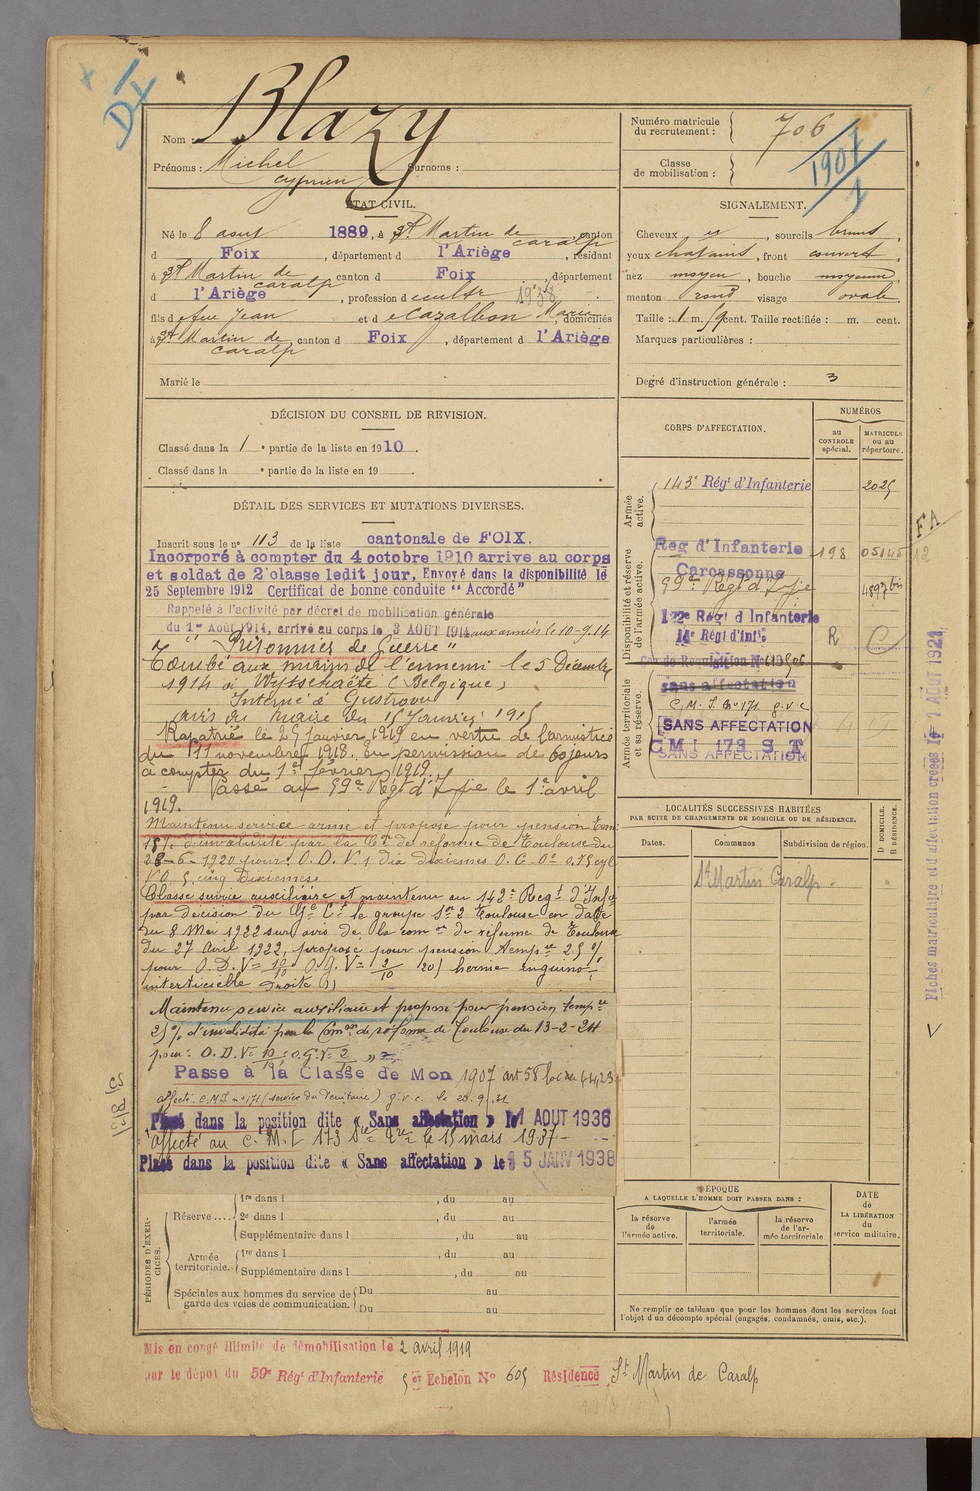 Nom : Blazy
Prénoms : Michel Surnoms :
cyprien
Numéro matricule
du recrutement : 706
Classe
de mobilisation : 1907
ÉTAT CIVIL.
Né le 8 aout 1889, à St Martin de caralp, canton
d Foix, département d l'Ariège, résidant
à St Martin de caralp, canton d Foix, département
d l'Ariège, profession d cultr 1938
fils d feu Jean et d Cazalbon Marie, domiciliés
à St Martin de caralp, canton d Foix, département d l'Ariège
Marié le
SIGNALEMENT.
Cheveux et, sourcils bruns,
yeux chatains, front couvert,
nez moyen, bouche moyenne
menton rond visage ovale
Taille : 1 m. 59 cent. Taille rectifiée : m. cent.
Marques particulières :
Degré d'instruction générale : 3
DÉCISION DU CONSEIL DE REVISION.
Classé dans la 1e partie de la liste en 1910.
Classé dans la e partie de la liste en 19
DÉTAIL DES SERVICES ET MUTATIONS DIVERSES.
Inscrit sous le n° 113 de la liste cantonale de FOIX.
Incorporé à compter du 4 octobre 1910 arrive au corps
et soldat de 2e classe ledit jour, Envoyé dans la disponibilité le
25 Septembre 1912 Certificat de bonne conduite "Accordé"
Rappelé à l'activité par décret de mobilisation générale
du 1er Août 1914, arrivé au corps le 3 AOUT 1914 aux armées le 10-9-14
" Prisonnier de Guerre "
Tombé aux mains de l'ennemi le 5 Décembre
1914 à Wytschaëte (Belgique)
Interné à Gustrow
avis du Maire du 15 Janvier 1915
Rapatrié le 25 Janvier 1919 en vertu de l'armistice
du 11 novembre 1918. En permission de 60 jours
à compter du 1er février 1919.
Passé au 59e Régt d'Ifie le 1er avril
1919.
Maintenu service armé et proposé pour pension tem.
15% d'invalidité par la Con de réforme de Toulouse du
28-6-1920 pour : O. D. V. 1 dix dixièmes O. G.
V 0,5 cinq dixièmes
Classé service auxiliaire et maintenu au 142e Regt d'Infie
par decision du Gal Ct le groupe Sn 2 Toulouse en date
du 8 Mai 1922 sur avis de la com on de réforme de Toulouse
du 27 Avril 1922, proposé pour pension temp re 25 %
pour O. D. V = 10/10 O. G. V = 2/10 20) hernie inguino-
intersticielle droite
Maintenu service auxiliaire et proposé pour pension temp re
25% d'invalidité par la Com on de réforme de Toulouse du 13-2-24
pour : O. D. V = 10/10 : O. G. V = 2/10
Passé à la Classe de Mon 1907 art 58 loi du
affecté C.M.I n° 171 (service du Territoire) g.v.c le
Placé dans la position dite « Sans affectation » le 1 AOUT 1936
affecté au C. M. I 173 le 15 mars 1937
Placé dans la position dite « Sans affectation » le 5 JANV 1938
CORPS D'AFFECTATION.
NUMÉROS
au
CONTROLE
spécial.
MATRICULE
ou au
répertoire.
Armée
active.
143e Régt d'Infanterie 2025
Disponibilité et réserve
de l'armée active.
Rég d'Infanterie 198 05145
Carcassonne
59e Regt d'Ifie 4897 bis
122e Régt d'Infanterie
14e Régt d'Infie R C
Armée territoriale
et sa réserve.
sans affectation
C. M. I. n° 171 g.v.c
SANS AFFECTATION
C M I 173 S T
SANS AFFECTATION
LOCALITÉS SUCCESSIVES HABITÉES
PAR SUITE DE CHANGEMENTS DE DOMICILE OU DE RÉSIDENCE.
D DOMICILE.
R RÉSIDENCE.
Dates. Communes Subdivision de région.
St Martin Caralp.
ÉPOQUE
A LAQUELLE L'HOMME DOIT PASSER DANS :
la réserve
de
l'armée active.
l'armée
territoriale.
la réserve
de l'ar-
mée territoriale
DATE
de
LA LIBÉRATION
du
service militaire.
Ne remplir ce tableau que pour les hommes dont les services font
l'objet d'un décompte spécial (engagés, condamnés, omis, etc.).
PÉRIODES D'EXER-
CICES.
Réserve....
1re dans l , du au
2e dans l , du au
Supplémentaire dans l , du au
Armée
territoriale.
1re dans l , du au
Supplémentaire dans l , du au
Spéciales aux hommes du service de
garde des voies de communication.
Du au
Du au
Mis en congé illimité de démobilisation le 2 avril 1919
par le dépôt du 59e Régt d'Infanterie 5 er Echelon N° 605 Résidence St Martin de Caralp
FA
12